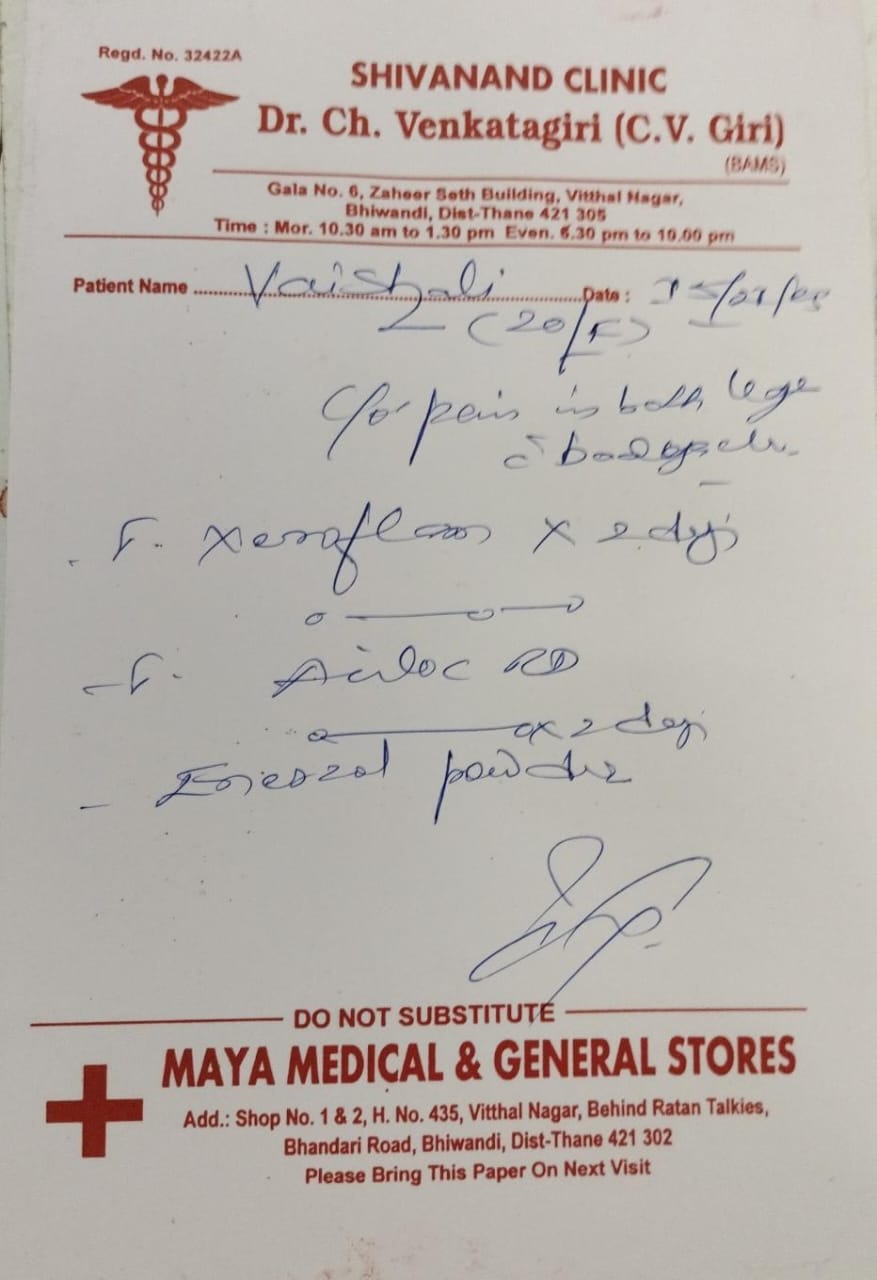 Regd. No. 32422A
SHIVANAND CLINIC
Dr. Ch. Venkatagiri (C.V. Giri)
(BAMS)
Gala No. 6, Zaheer Seth Building, Vitthal Nagar,
Bhiwandi, Dist-Thane 421 305
Time : Mor. 10.30 am to 1.30 pm Even. 6.30 pm to 10.00 pm
Patient Name Vaishali Date :
(20/F)
C/o pain in both legs
T. x 2 days
T. RD
x 2 days
powder
DO NOT SUBSTITUTE
MAYA MEDICAL & GENERAL STORES
Add.: Shop No. 1 & 2, H. No. 435, Vitthal Nagar, Behind Ratan Talkies,
Bhandari Road, Bhiwandi, Dist-Thane 421 302
Please Bring This Paper On Next Visit